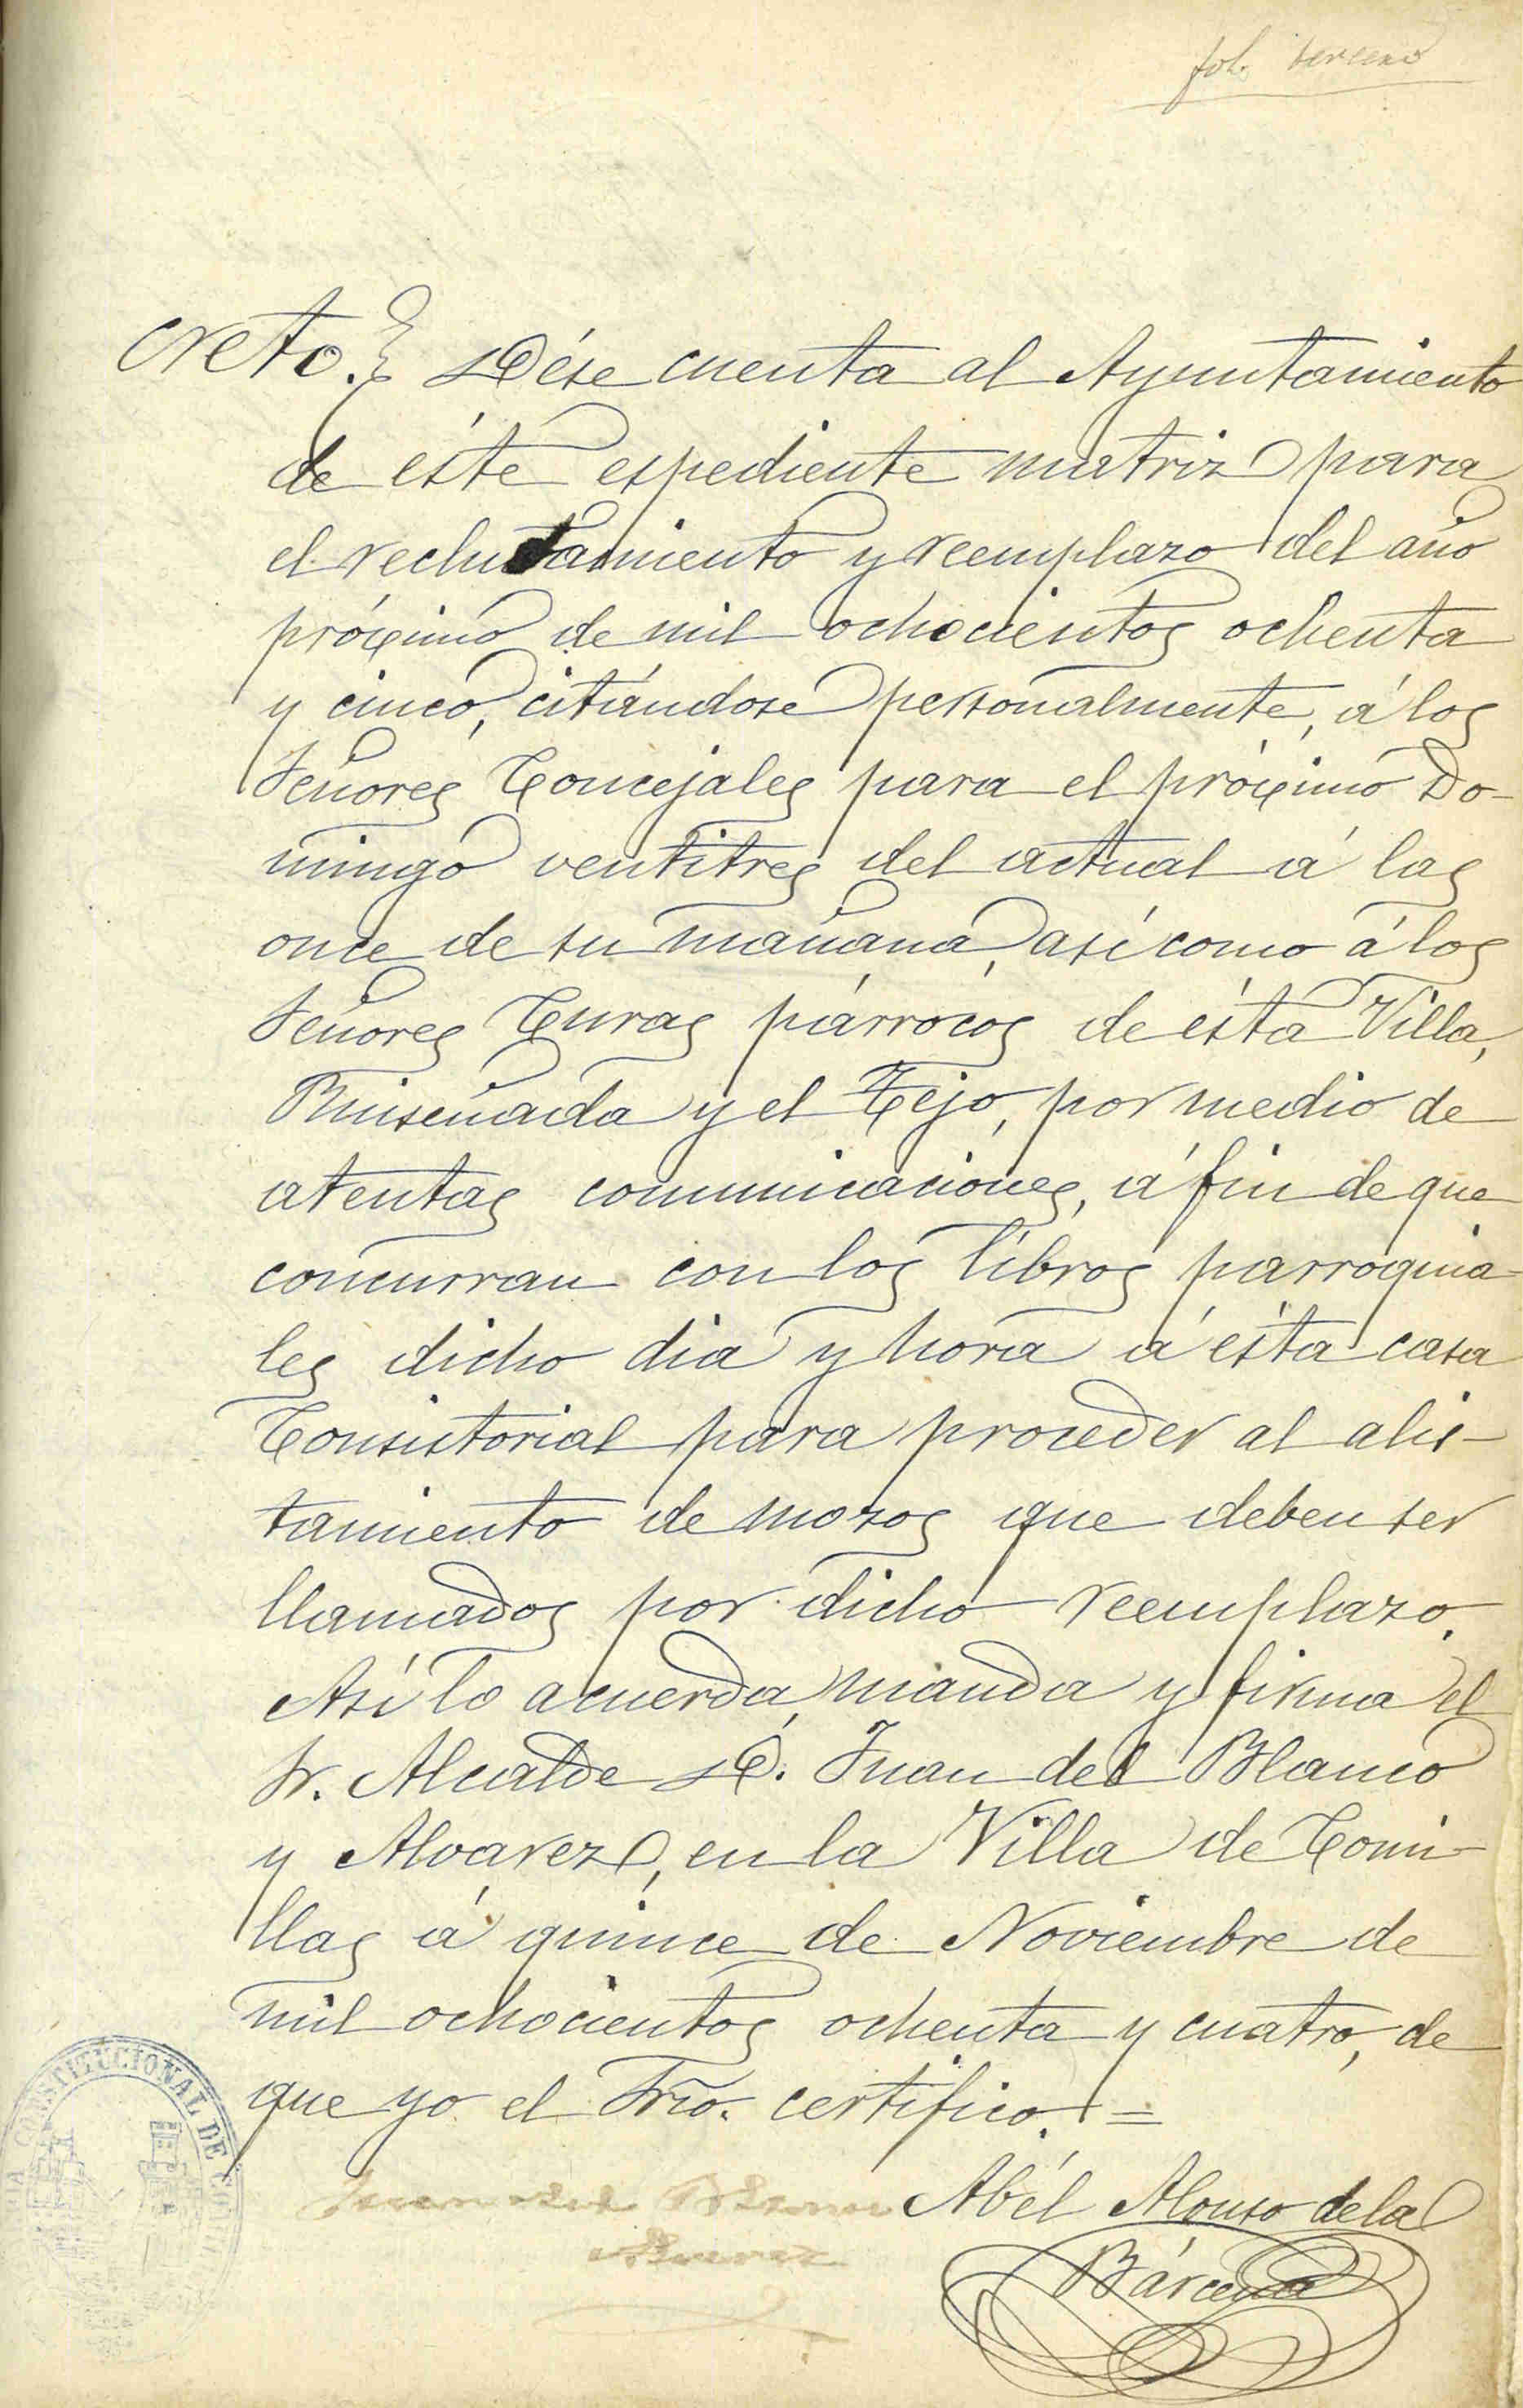 fol. tercero
creto. Dése cuenta al Ayuntamiento
de éste espediente matriz para
el reclutamiento y reemplazo del año
próximo de mil ochocientos ochenta
y cinco, citándose personalmente, á los
Señores Concejales para el próximo Do-
mingo ventitres del actual á las
once de su mañana, así como á los
Señores Curas párrocos de ésta Villa,
Ruiseñada y el Tejo, por medio de
atentas comunicaciones, á fin de que
concurran con los libros parroquia-
les dicho dia y hora á ésta casa
Consistorial para proceder al alis-
tamiento de mozos que deben ser
llamados por dicho reemplazo.
Así lo acuerda, manda y firma el
Sr. Alcalde D. Juan del Blanco
y Alvarez, en la Villa de Comi-
llas á quince de Noviembre de
mil ochocientos ochenta y cuatro, de
que yo el Srio. certifico. =
Juan del Blanco
Alvarez
Abél Alonso de la
Bárcena
CONSTITUCIONAL DE